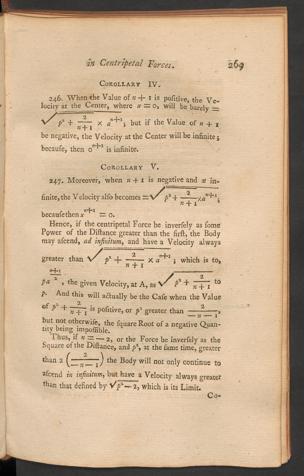 in Centripetal Forces. 269
COROLLARY IV.
246. When the Value of n + 1 is positive, the Ve-
locity at the Center, where x = 0, will be barely =
√ p² + 2/(n+1) × a^(n+1), but if the Value of n + 1
be negative, the Velocity at the Center will be infinite;
because, then 0^(n+1) is infinite.
COROLLARY V.
247. Moreover, when n + 1 is negative and x in-
finite, the Velocity also becomes = √ p² + 2/(n+1) × a^(n+1);
because then x^(n+1) = 0.
Hence, if the centripetal Force be inversely as some
Power of the Distance greater than the first, the Body
may ascend, ad infinitum, and have a Velocity always
greater than √ p² + 2/(n+1) × a^(n+1); which is to,
pa^((n+1)/2), the given Velocity, at A, as √ p² + 2/(n+1) to
p. And this will actually be the Case when the Value
of p² + 2/(n+1) is positive, or p² greater than 2/(−n−1),
but not otherwise, the square Root of a negative Quan-
tity being impossible.
Thus, if n = − 2, or the Force be inversely as the
Square of the Distance, and p², at the same time, greater
than 2 (2/(−n−1)) the Body will not only continue to
ascend in infinitum, but have a Velocity always greater
than that defined by √p² − 2, which is its Limit.
Co-